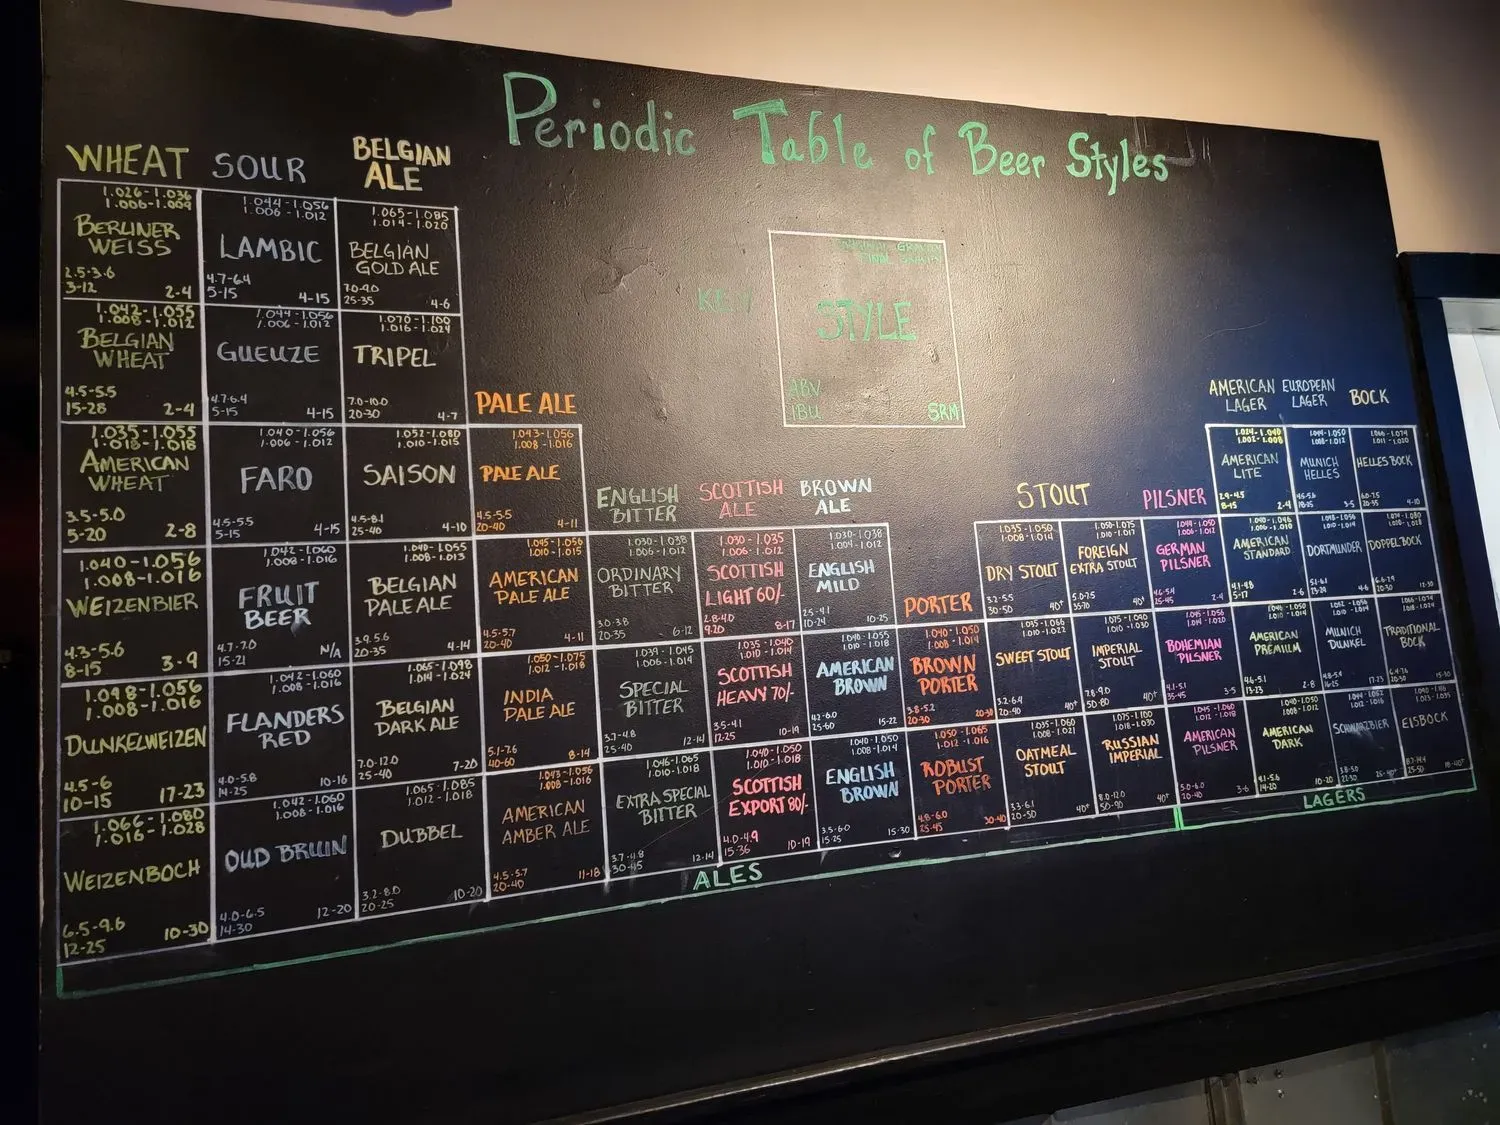 Periodic Table of Beer Styles
KEY
ORIGINAL GRAVITY
FINAL GRAVITY
STYLE
ABV
IBU
SRM
WHEAT
1.026-1.036
1.006-1.009
BERLINER
WEISS
2.5-3.6
3-12
2-4
1.042-1.055
1.008-1.012
BELGIAN
WHEAT
4.5-5.5
15-28
2-4
1.035-1.055
1.018-1.018
AMERICAN
WHEAT
3.5-5.0
5-20
2-8
1.040-1.056
1.008-1.016
WEIZENBIER
4.3-5.6
8-15
3-9
1.048-1.056
1.008-1.016
DUNKELWEIZEN
4.5-6
10-15
17-23
1.066-1.080
1.016-1.028
WEIZENBOCH
6.5-9.6
12-25
10-30
SOUR
1.044-1.056
1.006-1.012
LAMBIC
4.7-6.4
5-15
4-15
1.044-1.056
1.006-1.012
GUEUZE
4.7-6.4
5-15
4-15
1.040-1.056
1.006-1.012
FARO
4.5-5.5
5-15
4-15
1.042-1.060
1.008-1.016
FRUIT
BEER
4.7-7.0
15-21
N/A
1.042-1.060
1.008-1.016
FLANDERS
RED
4.0-5.8
14-25
10-16
1.042-1.060
1.008-1.016
OUD BRUIN
4.0-6.5
14-30
12-20
BELGIAN
ALE
1.065-1.085
1.014-1.020
BELGIAN
GOLD ALE
7.0-9.0
25-35
4-6
1.070-1.100
1.016-1.024
TRIPEL
7.0-10.0
20-30
4-7
1.052-1.080
1.010-1.015
SAISON
4.5-8.1
25-40
4-10
1.040-1.055
1.008-1.013
BELGIAN
PALE ALE
3.9-5.6
20-35
4-14
1.065-1.098
1.014-1.024
BELGIAN
DARK ALE
7.0-12.0
25-40
7-20
1.065-1.085
1.012-1.018
DUBBEL
3.2-8.0
20-25
10-20
PALE ALE
1.043-1.056
1.008-1.016
PALE ALE
4.5-5.5
20-40
4-11
1.045-1.056
1.010-1.015
AMERICAN
PALE ALE
4.5-5.7
20-40
4-11
1.050-1.075
1.012-1.018
INDIA
PALE ALE
5.1-7.6
40-60
8-14
1.043-1.056
1.008-1.016
AMERICAN
AMBER ALE
4.5-5.7
20-40
11-18
ENGLISH
BITTER
1.030-1.038
1.006-1.012
ORDINARY
BITTER
3.0-3.8
20-35
6-12
1.039-1.045
1.006-1.014
SPECIAL
BITTER
3.7-4.8
25-40
12-14
1.046-1.065
1.010-1.018
EXTRA SPECIAL
BITTER
3.7-4.8
30-45
12-14
SCOTTISH
ALE
1.030-1.035
1.006-1.012
SCOTTISH
LIGHT 60/-
2.8-4.0
9-20
8-17
1.035-1.040
1.010-1.014
SCOTTISH
HEAVY 70/-
3.5-4.1
12-25
10-19
1.040-1.050
1.010-1.018
SCOTTISH
EXPORT 80/-
4.0-4.9
15-36
10-19
BROWN
ALE
1.030-1.038
1.004-1.012
ENGLISH
MILD
2.5-4.1
10-24
10-25
1.040-1.055
1.010-1.018
AMERICAN
BROWN
4.2-6.0
25-60
15-22
1.040-1.050
1.008-1.014
ENGLISH
BROWN
3.5-6.0
15-25
15-30
PORTER
1.040-1.050
1.008-1.014
BROWN
PORTER
3.8-5.2
20-30
20-30
1.050-1.065
1.012-1.016
ROBUST
PORTER
4.8-6.0
25-45
30-40
STOUT
1.035-1.050
1.008-1.014
DRY STOUT
3.2-5.5
30-50
40+
1.035-1.066
1.010-1.022
SWEET STOUT
3.2-6.4
20-40
40+
1.035-1.060
1.008-1.021
OATMEAL
STOUT
3.3-6.1
20-50
40+
1.050-1.075
1.010-1.017
FOREIGN
EXTRA STOUT
5.0-7.5
35-70
40+
1.075-1.090
1.010-1.030
IMPERIAL
STOUT
7.8-9.0
50-80
40+
1.075-1.100
1.018-1.030
RUSSIAN
IMPERIAL
8.0-12.0
50-90
40+
PILSNER
1.044-1.050
1.006-1.012
GERMAN
PILSNER
4.6-5.4
25-45
2-4
1.045-1.056
1.014-1.020
BOHEMIAN
PILSNER
4.1-5.1
35-45
3-5
1.045-1.060
1.012-1.018
AMERICAN
PILSNER
5.0-6.0
20-40
3-6
AMERICAN
LAGER
1.024-1.040
1.002-1.008
AMERICAN
LITE
2.9-4.5
8-15
2-4
1.040-1.046
1.006-1.010
AMERICAN
STANDARD
4.1-4.8
5-17
2-6
1.046-1.050
1.010-1.014
AMERICAN
PREMIUM
4.6-5.1
13-23
2-8
1.040-1.050
1.008-1.012
AMERICAN
DARK
4.1-5.6
14-20
10-20
EUROPEAN
LAGER
1.044-1.050
1.008-1.012
MUNICH
HELLES
4.5-5.6
18-25
3-5
1.048-1.056
1.010-1.014
DORTMUNDER
5.1-6.1
23-29
4-6
1.052-1.056
1.010-1.014
MUNICH
DUNKEL
4.8-5.4
16-25
17-23
1.044-1.052
1.012-1.016
SCHWARZBIER
3.8-5.0
22-30
25-40+
BOCK
1.066-1.074
1.011-1.020
HELLES BOCK
6.0-7.5
20-35
4-10
1.074-1.080
1.020-1.028
DOPPELBOCK
6.6-7.9
20-30
12-30
1.066-1.074
1.018-1.024
TRADITIONAL
BOCK
6.4-7.6
20-30
15-30
EISBOCK
8.7-14.4
25-50
18-40+
ALES
LAGERS